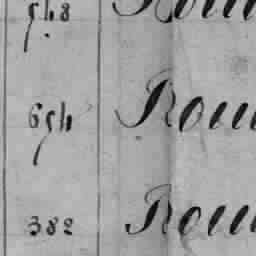 548 Rou
654 Rou
382 Rou